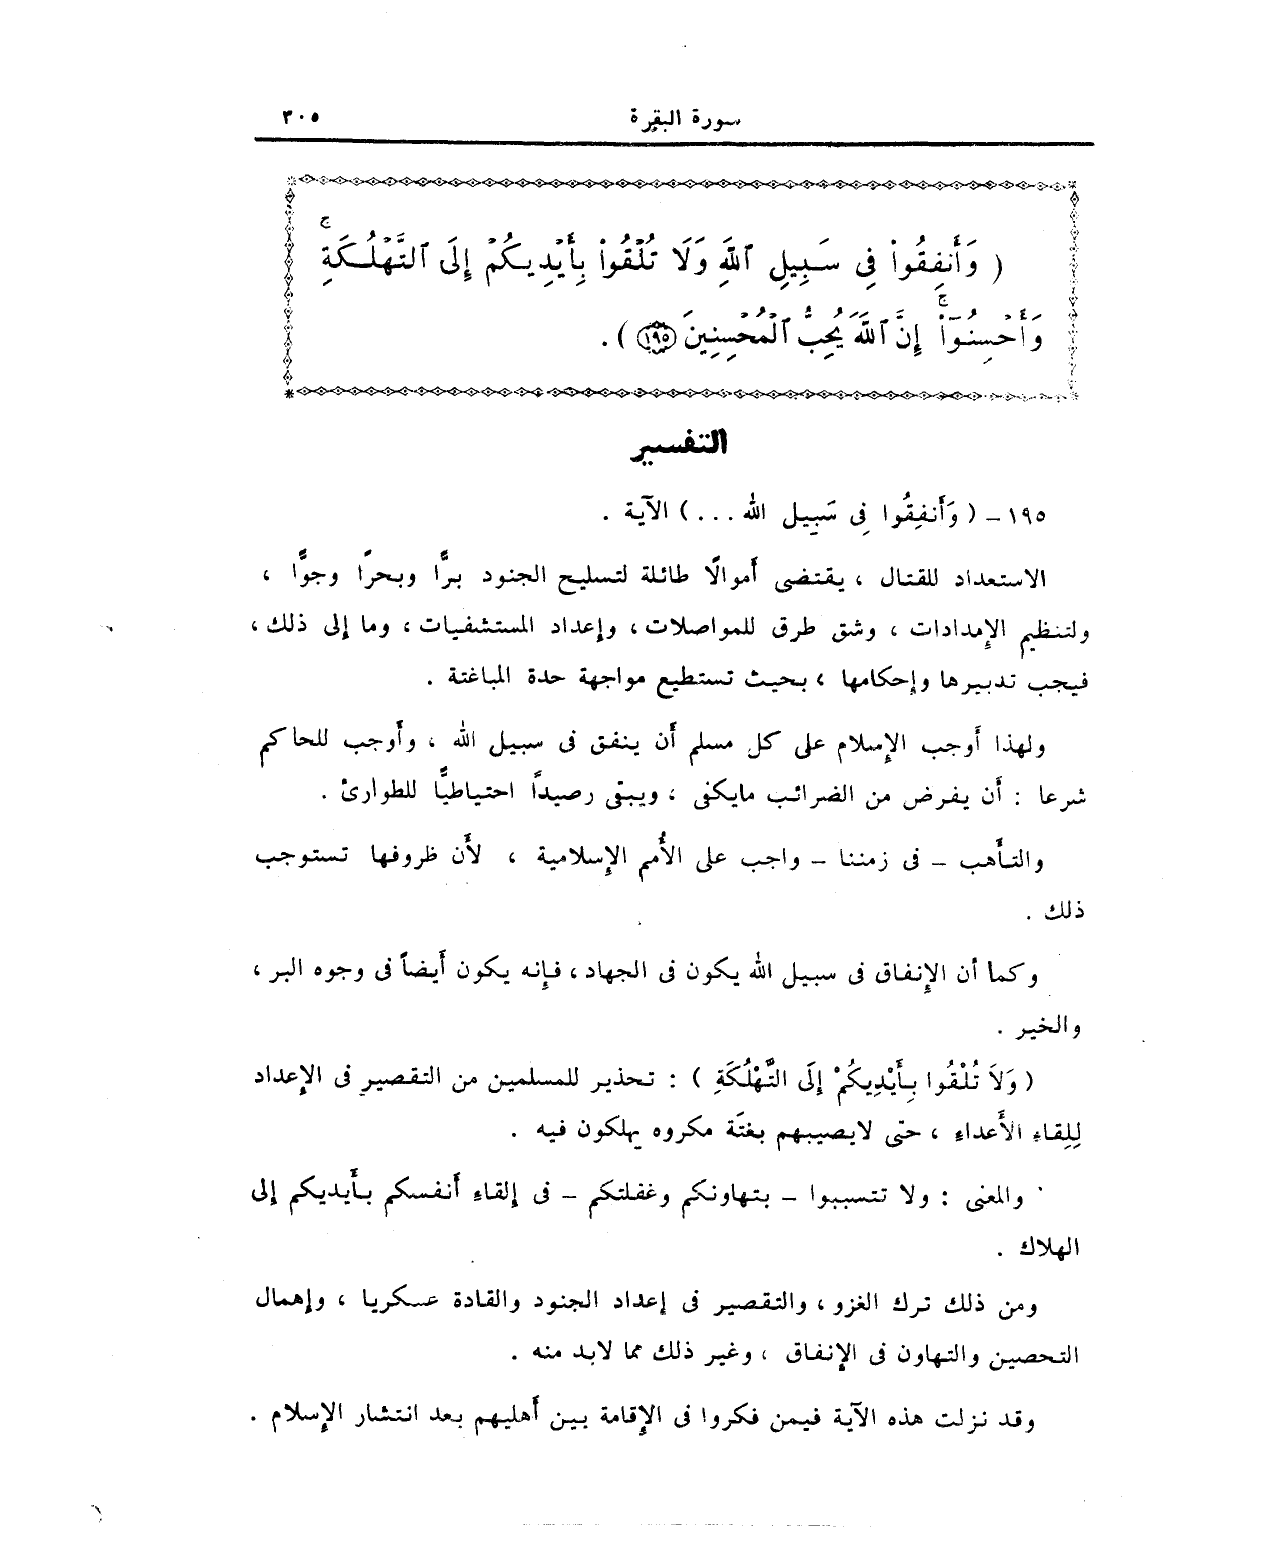 سورة البقرة ٣٠٥
( وَأَنفِقُوا۟ فِى سَبِيلِ ٱللَّهِ وَلَا تُلْقُوا۟ بِأَيْدِيكُمْ إِلَى ٱلتَّهْلُكَةِ ۛ
وَأَحْسِنُوٓا۟ ۛ إِنَّ ٱللَّهَ يُحِبُّ ٱلْمُحْسِنِينَ ١٩٥ ) .
التفسير
١٩٥ – ( وَأَنفِقُوا فِى سَبِيلِ اللّه ... ) الآية .
الاستعداد للقتال ، يقتضى أموالًا طائلة لتسليح الجنود برًّا وبحرًا وجوًّا ،
ولتنظيم الإمدادات ، وشق طرق للمواصلات ، وإعداد المستشفيات ، وما إلى ذلك ،
فيجب تدبيرها وإحكامها ، بحيث تستطيع مواجهة حدة المباغتة .
ولهذا أوجب الإسلام على كل مسلم أن ينفق فى سبيل الله ، وأوجب للحاكم
شرعا : أن يفرض من الضرائب مايكفى ، ويبقى رصيداً احتياطيًّا للطوارئ .
والتأهب – فى زمننا – واجب على الأُمم الإسلامية ، لأن ظروفها تستوجب
ذلك .
وكما أن الإنفاق فى سبيل الله يكون فى الجهاد ، فإنه يكون أيضاً فى وجوه البر ،
والخير .
( وَلاَ تُلْقُوا بِأَيْدِيكُمْ إِلَى التَّهْلُكَةِ ) : تحذير للمسلمين من التقصير فى الإعداد
لِلِقاءِ الأَعداءِ ، حتى لايصيبهم بغتَة مكروه يهلكون فيه .
والمعنى : ولا تتسببوا – بتهاونكم وغفلتكم – فى إلقاءِ أنفسكم بأيديكم إلى
الهلاك .
ومن ذلك ترك الغزو ، والتقصير فى إعداد الجنود والقادة عسكريا ، وإهمال
التحصين والتهاون فى الإنفاق ، وغير ذلك مما لابد منه .
وقد نزلت هذه الآية فيمن فكروا فى الإقامة بين أهليهم بعد انتشار الإسلام .